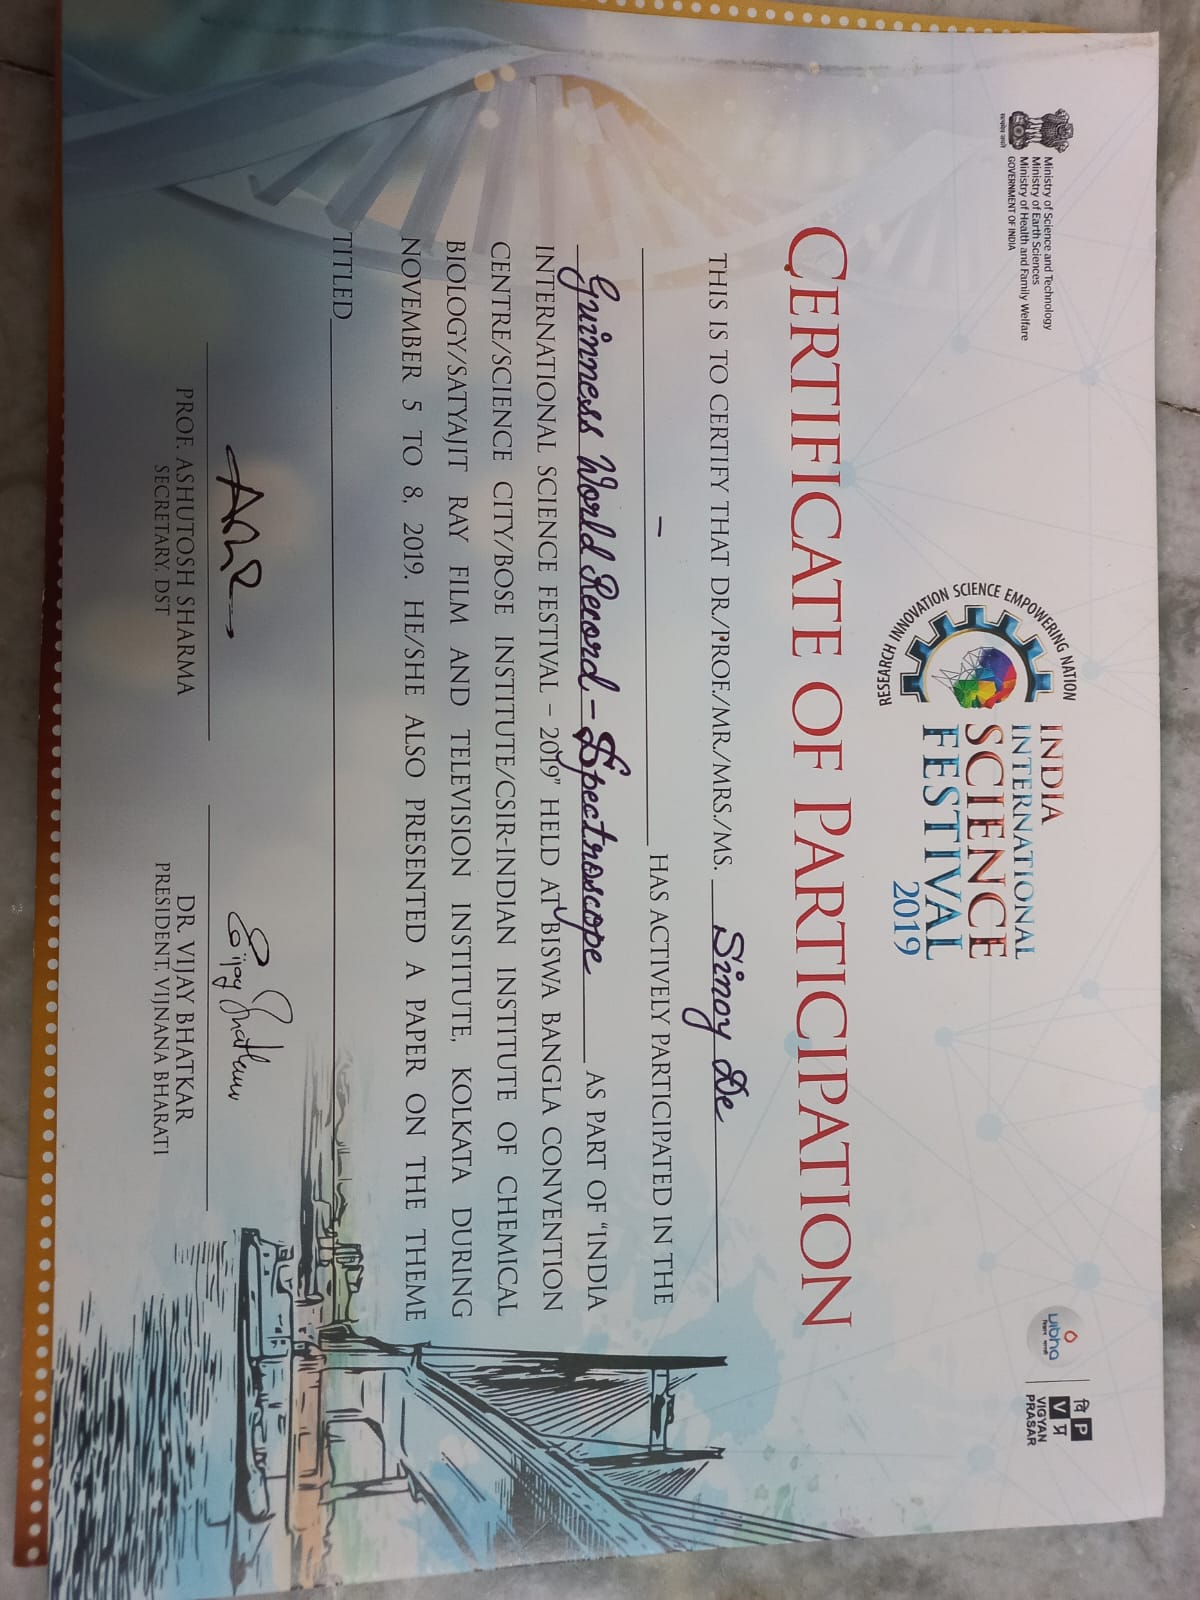 Ministry of Science and Technology
Ministry of Earth Sciences
Ministry of Health and Family Welfare
GOVERNMENT OF INDIA
सत्यमेव जयते
RESEARCH INNOVATION SCIENCE EMPOWERING NATION
INDIA
INTERNATIONAL
SCIENCE
FESTIVAL
2019
vibha
विज्ञान भारती
वि P
V प्र
VIGYAN
PRASAR
CERTIFICATE OF PARTICIPATION
THIS IS TO CERTIFY THAT DR./PROF./MR./MRS./MS. Sinoy De
– HAS ACTIVELY PARTICIPATED IN THE
Guinness World Record – Spectroscope AS PART OF “INDIA
INTERNATIONAL SCIENCE FESTIVAL – 2019” HELD AT BISWA BANGLA CONVENTION
CENTRE/SCIENCE CITY/BOSE INSTITUTE/CSIR-INDIAN INSTITUTE OF CHEMICAL
BIOLOGY/SATYAJIT RAY FILM AND TELEVISION INSTITUTE, KOLKATA DURING
NOVEMBER 5 TO 8, 2019. HE/SHE ALSO PRESENTED A PAPER ON THE THEME
TITLED
Vijay Bhatkar
PROF. ASHUTOSH SHARMA
SECRETARY, DST
DR. VIJAY BHATKAR
PRESIDENT, VIJNANA BHARATI